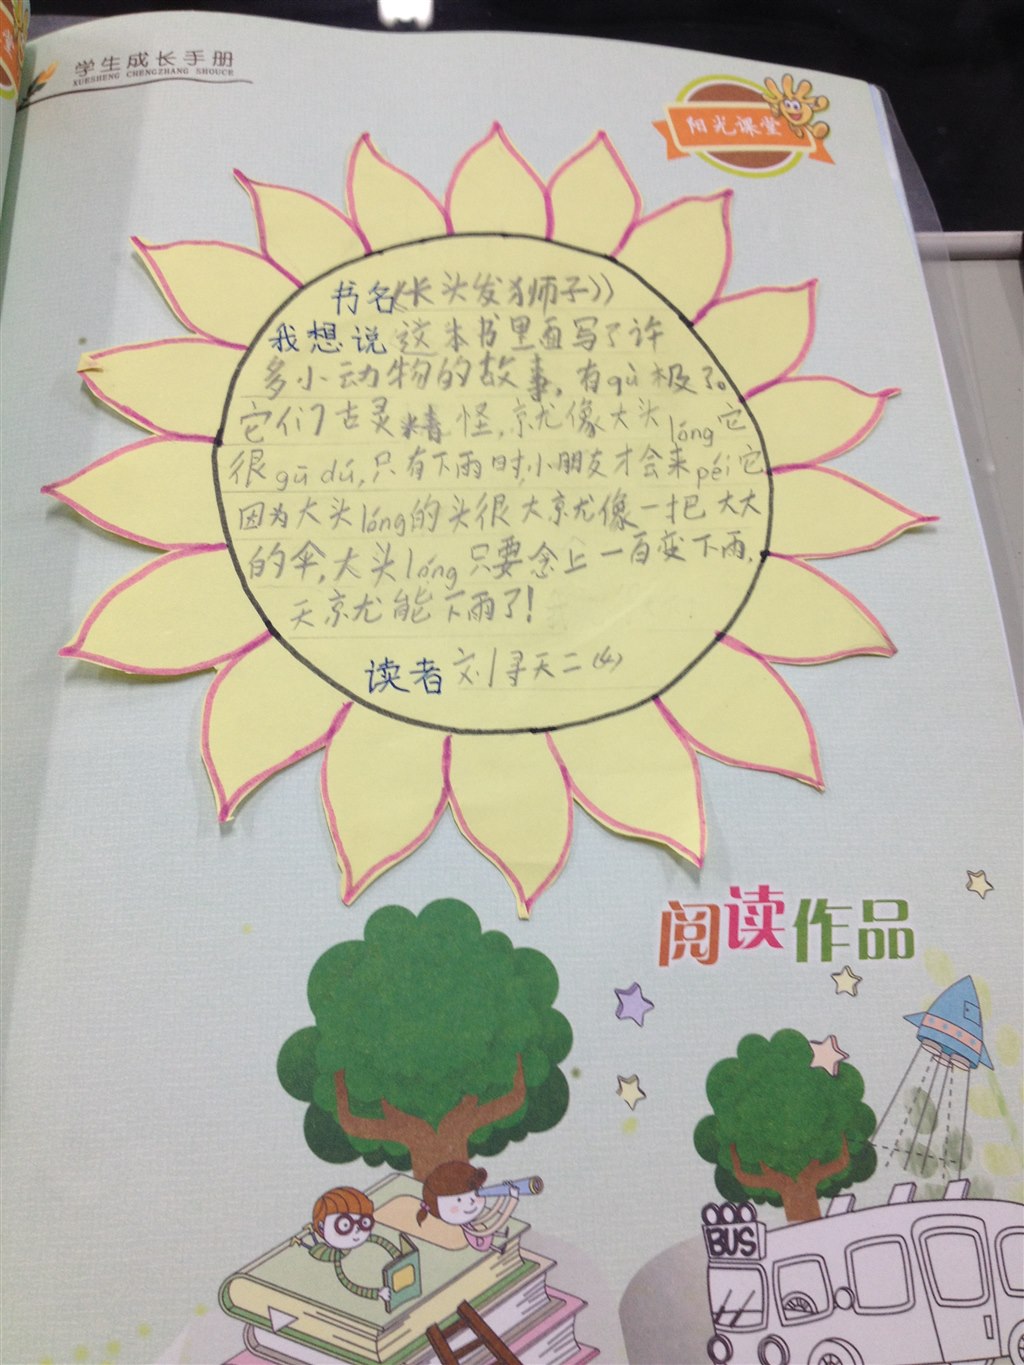 学生成长手册
XUESHENG CHENGZHANG SHOUCE
阳光课堂
书名《长头发狮子》
我想说这本书里面写了许
多小动物的故事,有qù极了。
它们古灵精怪,就像大头lóng它
很gū dú,只有下雨时,小朋友才会来péi它
因为大头lóng的头很大就像一把大大
的伞,大头lóng只要念上一百变下雨,
天就能下雨了!
读者 刘寻天二(4)
阅读作品
BUS